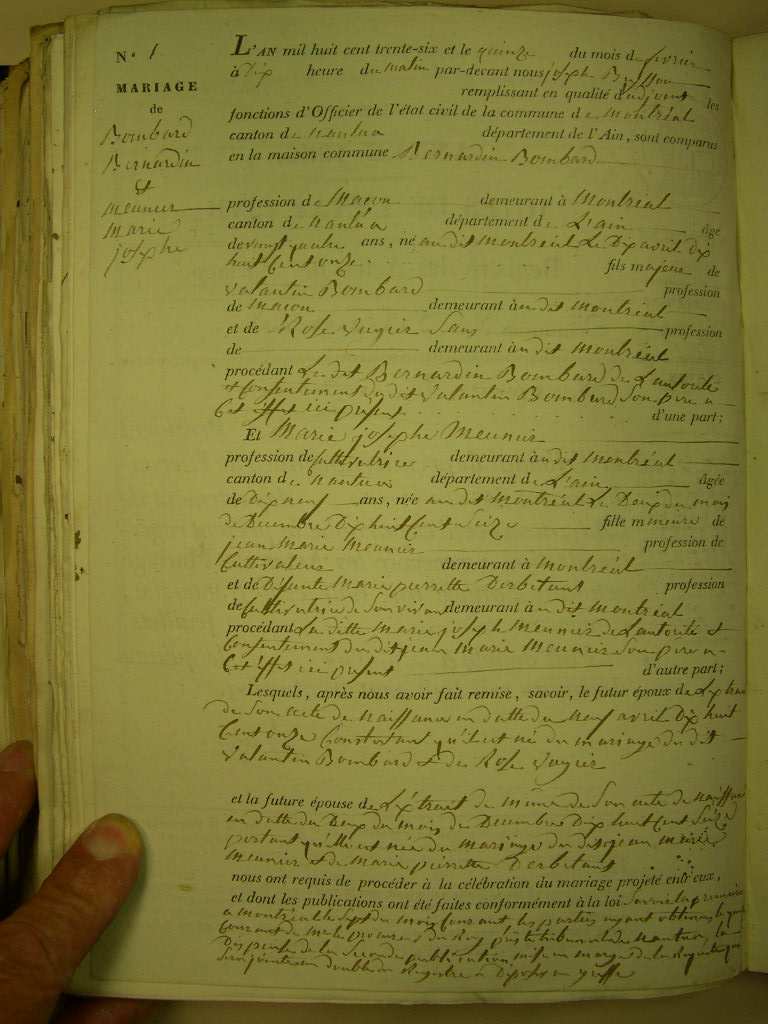 N.o 1
MARIAGE
de
Bombard
Bernardin
et
meunier
marie
josephe
L'AN mil huit cent trente-six et le quinze du mois de fevrier
à Dix heure du matin par-devant nous joseph
remplissant en qualité d'adjoint les
fonctions d'Officier de l'état civil de la commune de Montréal
canton de Nantua département de l'Ain, sont comparus
en la maison commune Bernardin Bombard
profession de Macon demeurant à Montréal
canton de Nantua département de L'ain âgé
de vingt quatre ans, né au dit Montréal Le Dix avril Dix
huit Cent onze fils majeur de
Valantin Bombard profession
de Macon demeurant à u dit Montréal
et de Rose Vugier Sans profession
de demeurant à u dit Montréal
procédant Le dit Bernardin Bombard de L'autorité
et Consentement du dit Valantin Bombard Son pere a
Cet effet ici présent d'une part;
Et Marie josephe Meunier
profession de Cultivatrice demeurant à u dit Montréal
canton de Nantua département de L'ain âgée
de Dix neuf ans, née au dit Montréal Le Deux du mois
de Decembre Dix huit Cent Seize fille mineure de
jean Marie Meunier profession de
Cultivateur demeurant à Montréal
et de Defunte Marie pierrette Derbetant profession
de Cultivatrice de Son vivan demeurant à u dit Montréal
procédant La ditte Marie joseph Meunier de L'autorité et
Consentement du dit jean Marie Meunier Son pere a
Cet Effet ici présent d'autre part;
Lesquels, après nous avoir fait remise, savoir, le futur époux de L'extrait
de Son acte de Naissance en datte du Neuf avril Dix huit
Cent onze Constatant qu'il est né du mariage du dit
Valantin Bombard et de Rose Vugier
et la future épouse de L'extrait de même de Son acte de Naissance
en datte du Deux du mois de Decembre Dix huit Cent Seize
portant qu'elle est née du Mariage du dit jean Marie
Meunier et de Marie pierrette Derbetant
nous ont requis de procéder à la célébration du mariage projeté entre eux,
et dont les publications ont été faites conformément à la loi Savoir la premiere
a Montréal le Sept du mois Courant, les parties ayant obtenu le
Courant de Mr le procureur du Roy près le tribunal de Nantua, la
Dispense de la Seconde publication mise en marge de la Requete qui
Sera jointe au double du Registre a Déposer au greffe